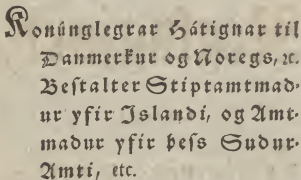 Konúnglegrar Hátignar til
Danmerkur og Noregs, ꝛc.
Bestalter Stiptamtmad-
ur yfir Islandi, og Amt-
madur yfir þess Sudur-
Amti, etc.